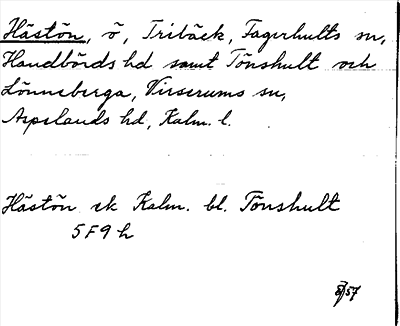 Hästön, ö, Tribäck, Fagerhults sn,
Handbörds hd samt Tönshult och
Lönneberga, Virserums sn,
Aspelands hd, Kalm. l.
Hästön ek Kalm. bl. Tönshult
5F9h
57